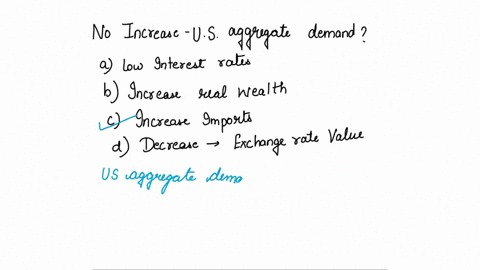 No Increase - U.S. aggregate demand?
a) Low Interest rates
b) Increase real wealth
c) Increase Imports
d) Decrease → Exchange rate Value
US aggregate dema